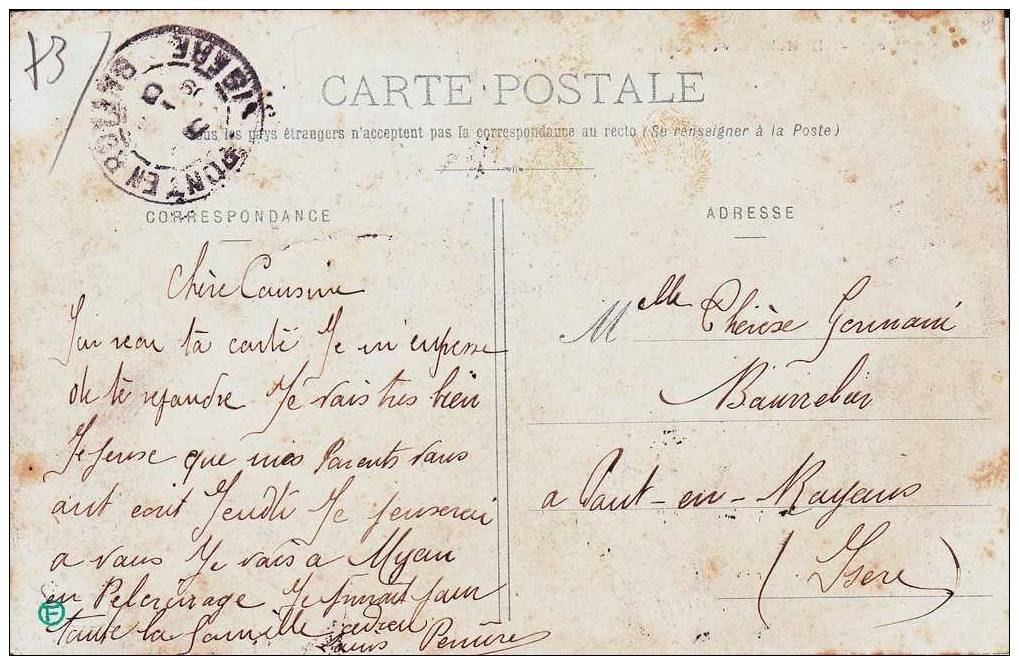 43
PONT EN ROYANS
ISERE
CARTE POSTALE
Tous les pays étrangers n'acceptent pas la correspondance au recto (Se renseigner à la Poste)
CORRESPONDANCE
Chère Cousine
J'ai recu ta carte Je m'enpresse
de te repondre Je vais tres bien
Je pense que mes Parents vous
ont ecrit Jeudi Je penserai
a vous Je vais a Myan
en Pelerinage Je pour
toute la famille adieu
Perrière
ADRESSE
Melle Thérèse Germain
a Pont-en-Royans
(Isere)